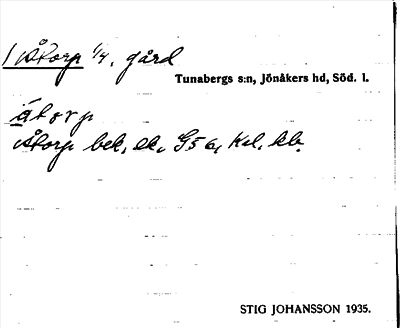 1 Åtorp 1/4, gård
Tunabergs s:n, Jönåkers hd, Söd. l.
åtorp
Åtorp bek, ek, G5a, Kal, kb.
STIG JOHANSSON 1935.